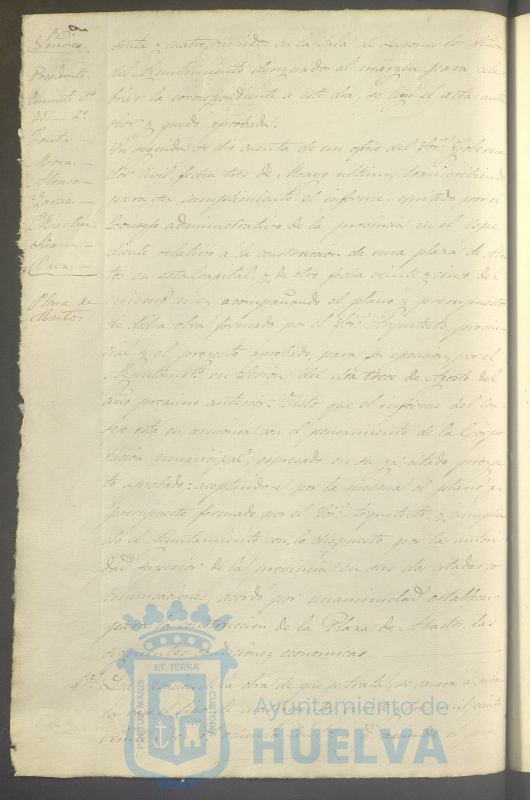 Señores.
Presidente.
Teniente 1º
Id — 2º
Mora. —
Alonso —
Garcia. —
Plaza de
Abastos
senta y cuatro, reunidos en la Sala de Sesiones los Señores
del Ayuntamiento designados al margen para cele-
brar la correspondiente a este dia, se leyó el acta ante-
rior y quedó aprobada.
En seguida se dio cuenta de un oficio del Sor. Goberna-
dor Civil fecha tres de Marzo ultimo, transcribiendo
para su cumplimiento el informe emitido por el
Consejo administrativo de la provincia en el espe-
diente relativo a la construccion de una plaza de Abas-
tos en esta Capital, y de otro fecha veinte y cinco del
mismo mes, acompañando el plano y presupuesto
de dicha obra formado por el Sor. Arquitecto provin-
cial y el proyecto aprobado, para su ejecucion, por el
Ayuntamto. en sesion del dia trece de Agosto del
año procsimo anterior. Visto que el informe del Con-
sejo está en armonia con el pensamiento de la Corpo-
racion municipal, espresado en su ya citado proyec-
to aprobado: aceptandose por la misma el plano y
presupuesto formado por el Sor. Arquitecto, y cumplien-
do el Ayuntamiento con lo dispuesto por la autori-
dad Superior de la provincia en sus dos citadas co-
municaciones, acordó por unanimidad establecer
para la construccion de la Plaza de Abastos, las
siguientes condiciones economicas.
1ª La ejecucion de la obra de que se trata, se sacará a subas-
ET TERRÆ
PORTUS MARIS
CUSTODIA
Ayuntamiento de
HUELVA